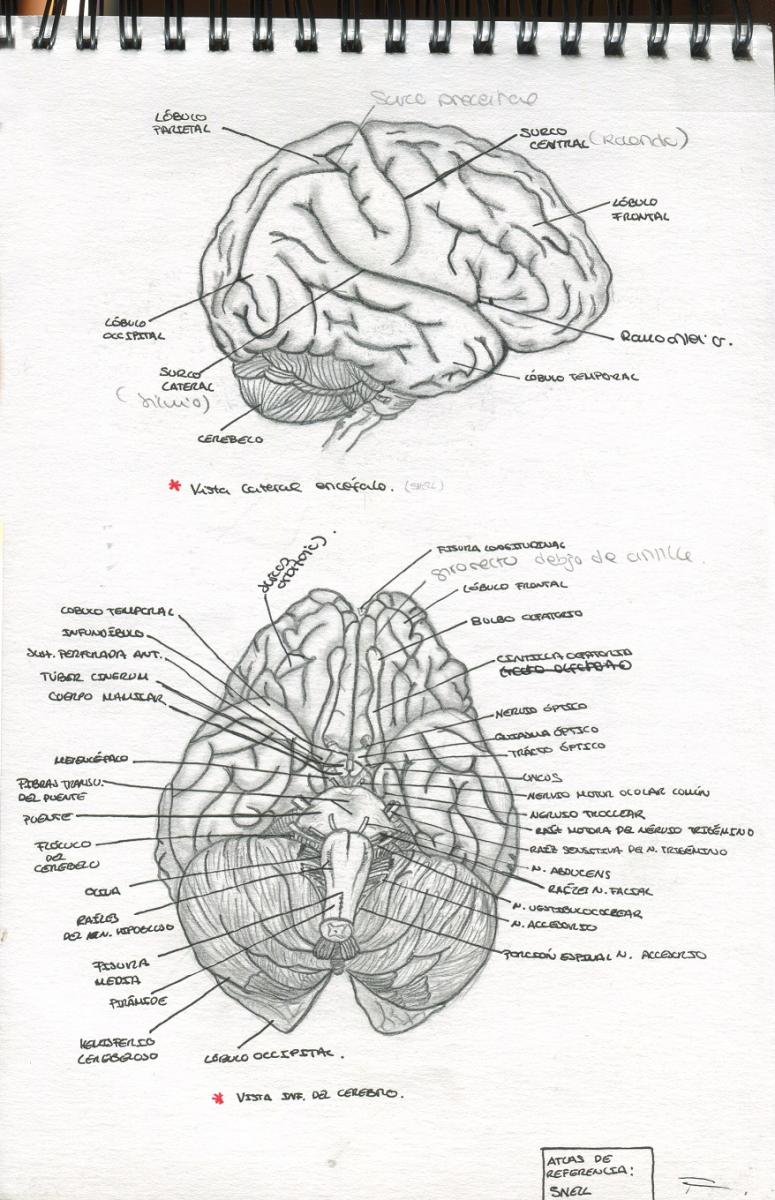 Surco precentral
LÓBULO
PARIETAL
SURCO
CENTRAL (Rolando)
LÓBULO
FRONTAL
LÓBULO
OCCIPITAL
Ramo anterior.
SURCO
LATERAL
(Silvio)
LÓBULO TEMPORAL
CEREBELO
* Vista lateral encéfalo. (SNELL)
surcos
orbitario).
FISURA LONGITUDINAL
giro recto debajo de cintilla.
LÓBULO FRONTAL
LOBULO TEMPORAL
BULBO OLFATORIO
INFUNDÍBULO
SUST. PERFORADA ANT.
CINTILLA OLFATORIO
TÚBER CINERUM
CUERPO MAMILAR
NERVIO ÓPTICO
QUIASMA ÓPTICO
TRACTO ÓPTICO
MESENCÉFALO
UNCUS
FIBRAS TRANSV.
DEL PUENTE
NERVIO MOTOR OCULAR COMÚN
PUENTE
NERVIO TROCLEAR
RAÍZ MOTORA DE NERVIO TRIGÉMINO
FLÓCULO
DEL
CEREBELO
RAÍZ SENSITIVA DE N. TRIGÉMINO
N. ABDUCENS
OLIVA
RAÍCES N. FACIAL
N. VESTIBULOCOCLEAR
RAÍCES
DEL N. HIPOGLOSO
N. ACCESORIO
PORCIÓN ESPINAL N. ACCESORIO
FISURA
MEDIA
PIRÁMIDE
HEMISFERIO
CEREBELOSO
LÓBULO OCCIPITAL.
* VISTA INF. DEL CEREBRO.
ATLAS DE
REFERENCIA:
SNELL